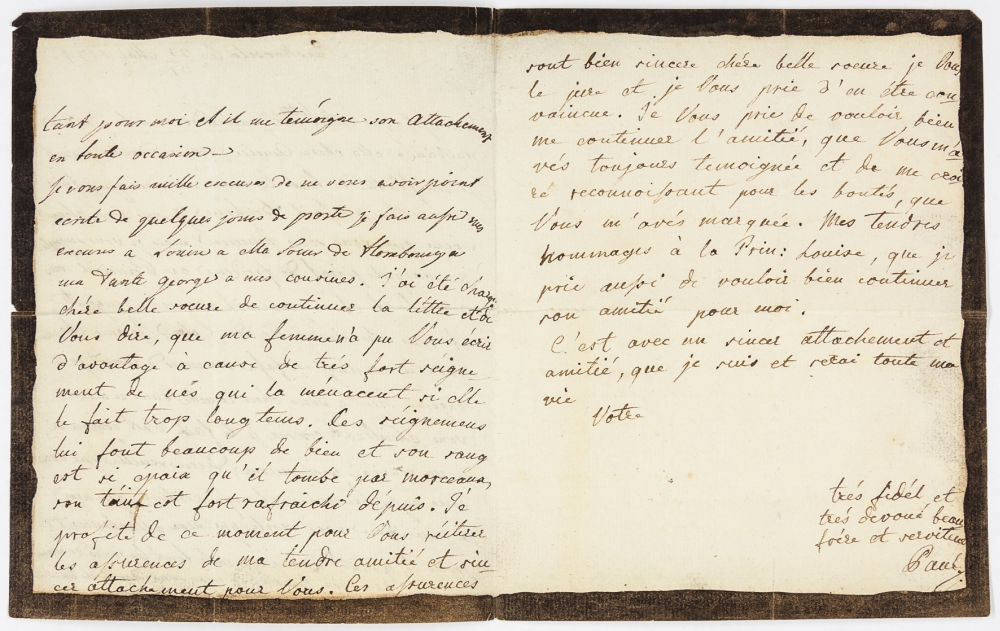 tant pour moi et il me temoigne son attachement
en toute occasion —
je vous fais mille excuses de ne vous avoir point
ecrite de quelques jours de poste je fais aussi mes
excuses a Louise a Ma Soeur de Hombourg a
ma Tante George a mes cousines. J'ai été chargé
chére belle soeure de continuer la lettre et de
Vous dire, que ma femme n'a pu Vous écrir
d'avantage à cause de trés fort seigne-
ment de nés qui la ménacent si elle
le fait trop longtems. Ces seignemens
lui font beaucoup de bien et son sang
est si épaix qu'il tombe par morceaux,
son tein est fort rafraichi dépuis. Je
profite de ce moment pour Vous réitirer
les assurences de ma tendre amitié et sin
cer attachement pour Vous. Ces assurences
sont bien sincere chére belle soeure je Vous
le jure et je Vous prie d'en étre con
vaincue. Je Vous prie de vouloir bien
me continuer l'amitié, que Vous m'a
vés toujours temoignée et de me croi
ré reconnoissant pour les bontés, que
Vous m'avés marquée. Mes tendres
hommages à la Prin: Louise, que je
prie aussi de vouloir bien continuer
son amitié pour moi.
C'est avec un sincer attachement et
amitié, que je suis et serai toute ma
vie
Votre
trés fidél et
trés devoué beau
frére et serviteur
Paul